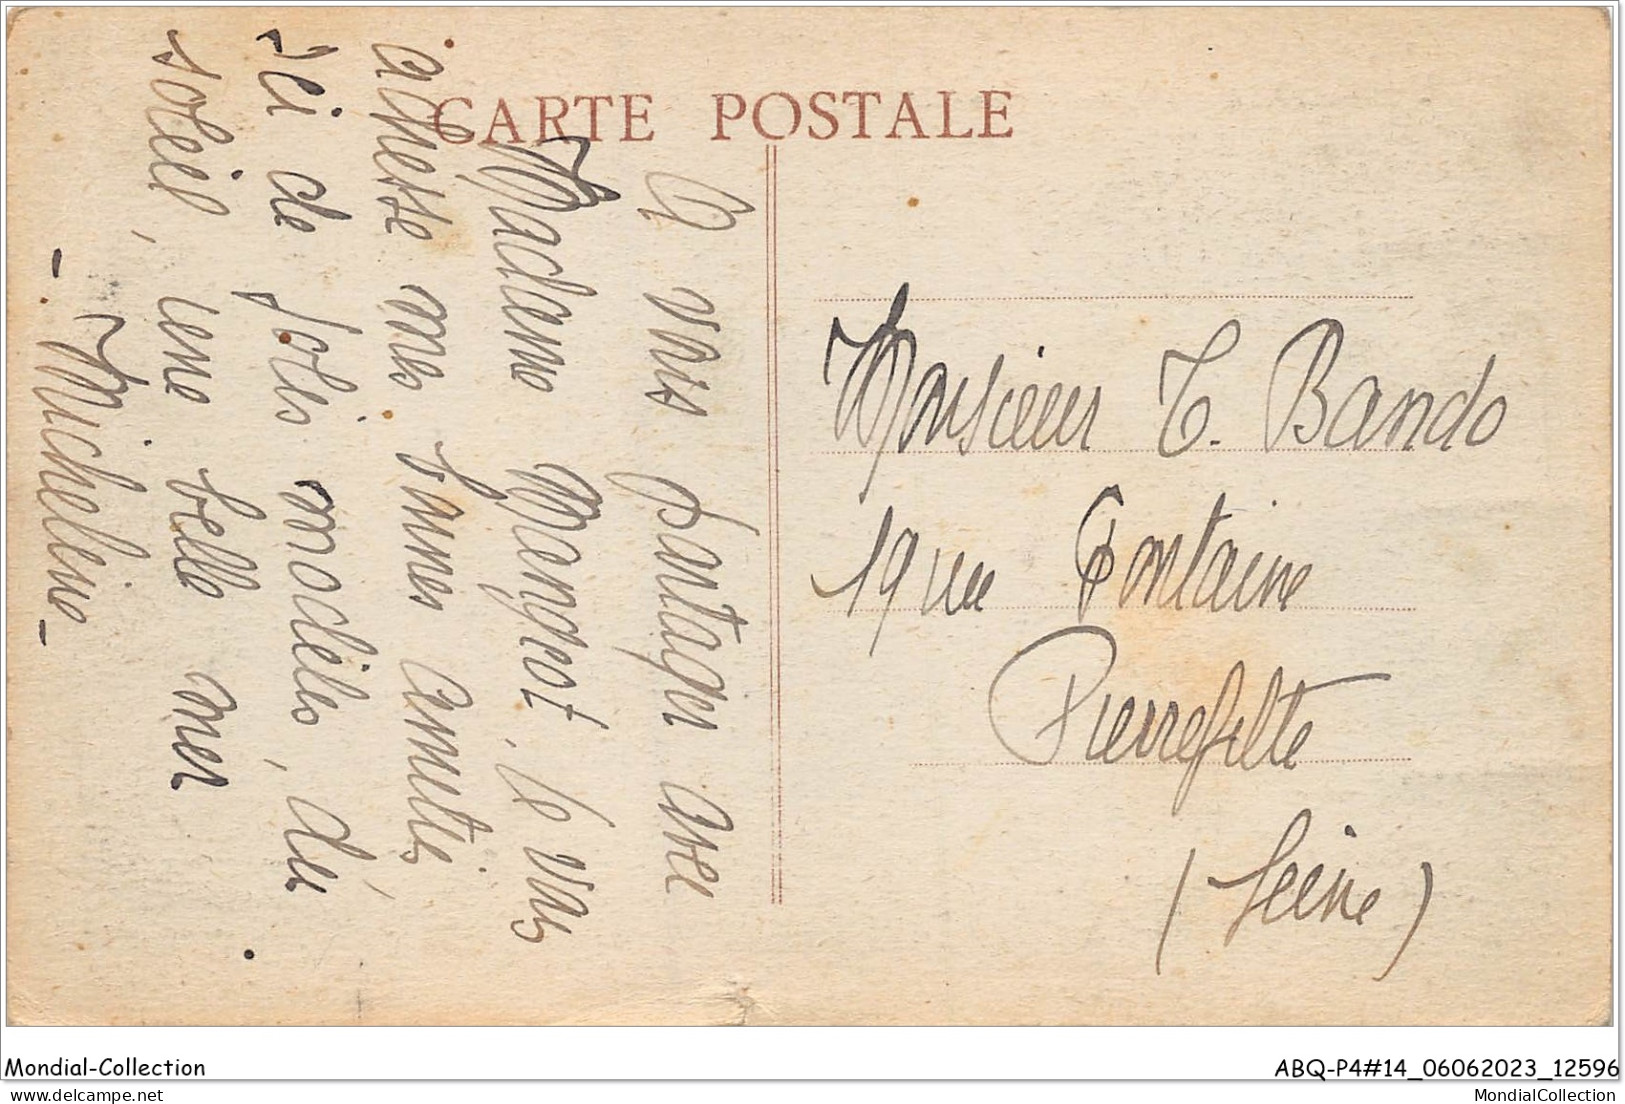 CARTE POSTALE
A vous partager avec
Madame Mangeot, je vous
adresse mes bonnes amitiés
Ici de jolis modèles, du
soleil, une belle mer
- Micheline -
Monsieur T. Bando
19 rue Fontaine
Pierrefitte
(Seine)
Mondial-Collection
ABQ-P4#14_06062023_12596
MondialCollection